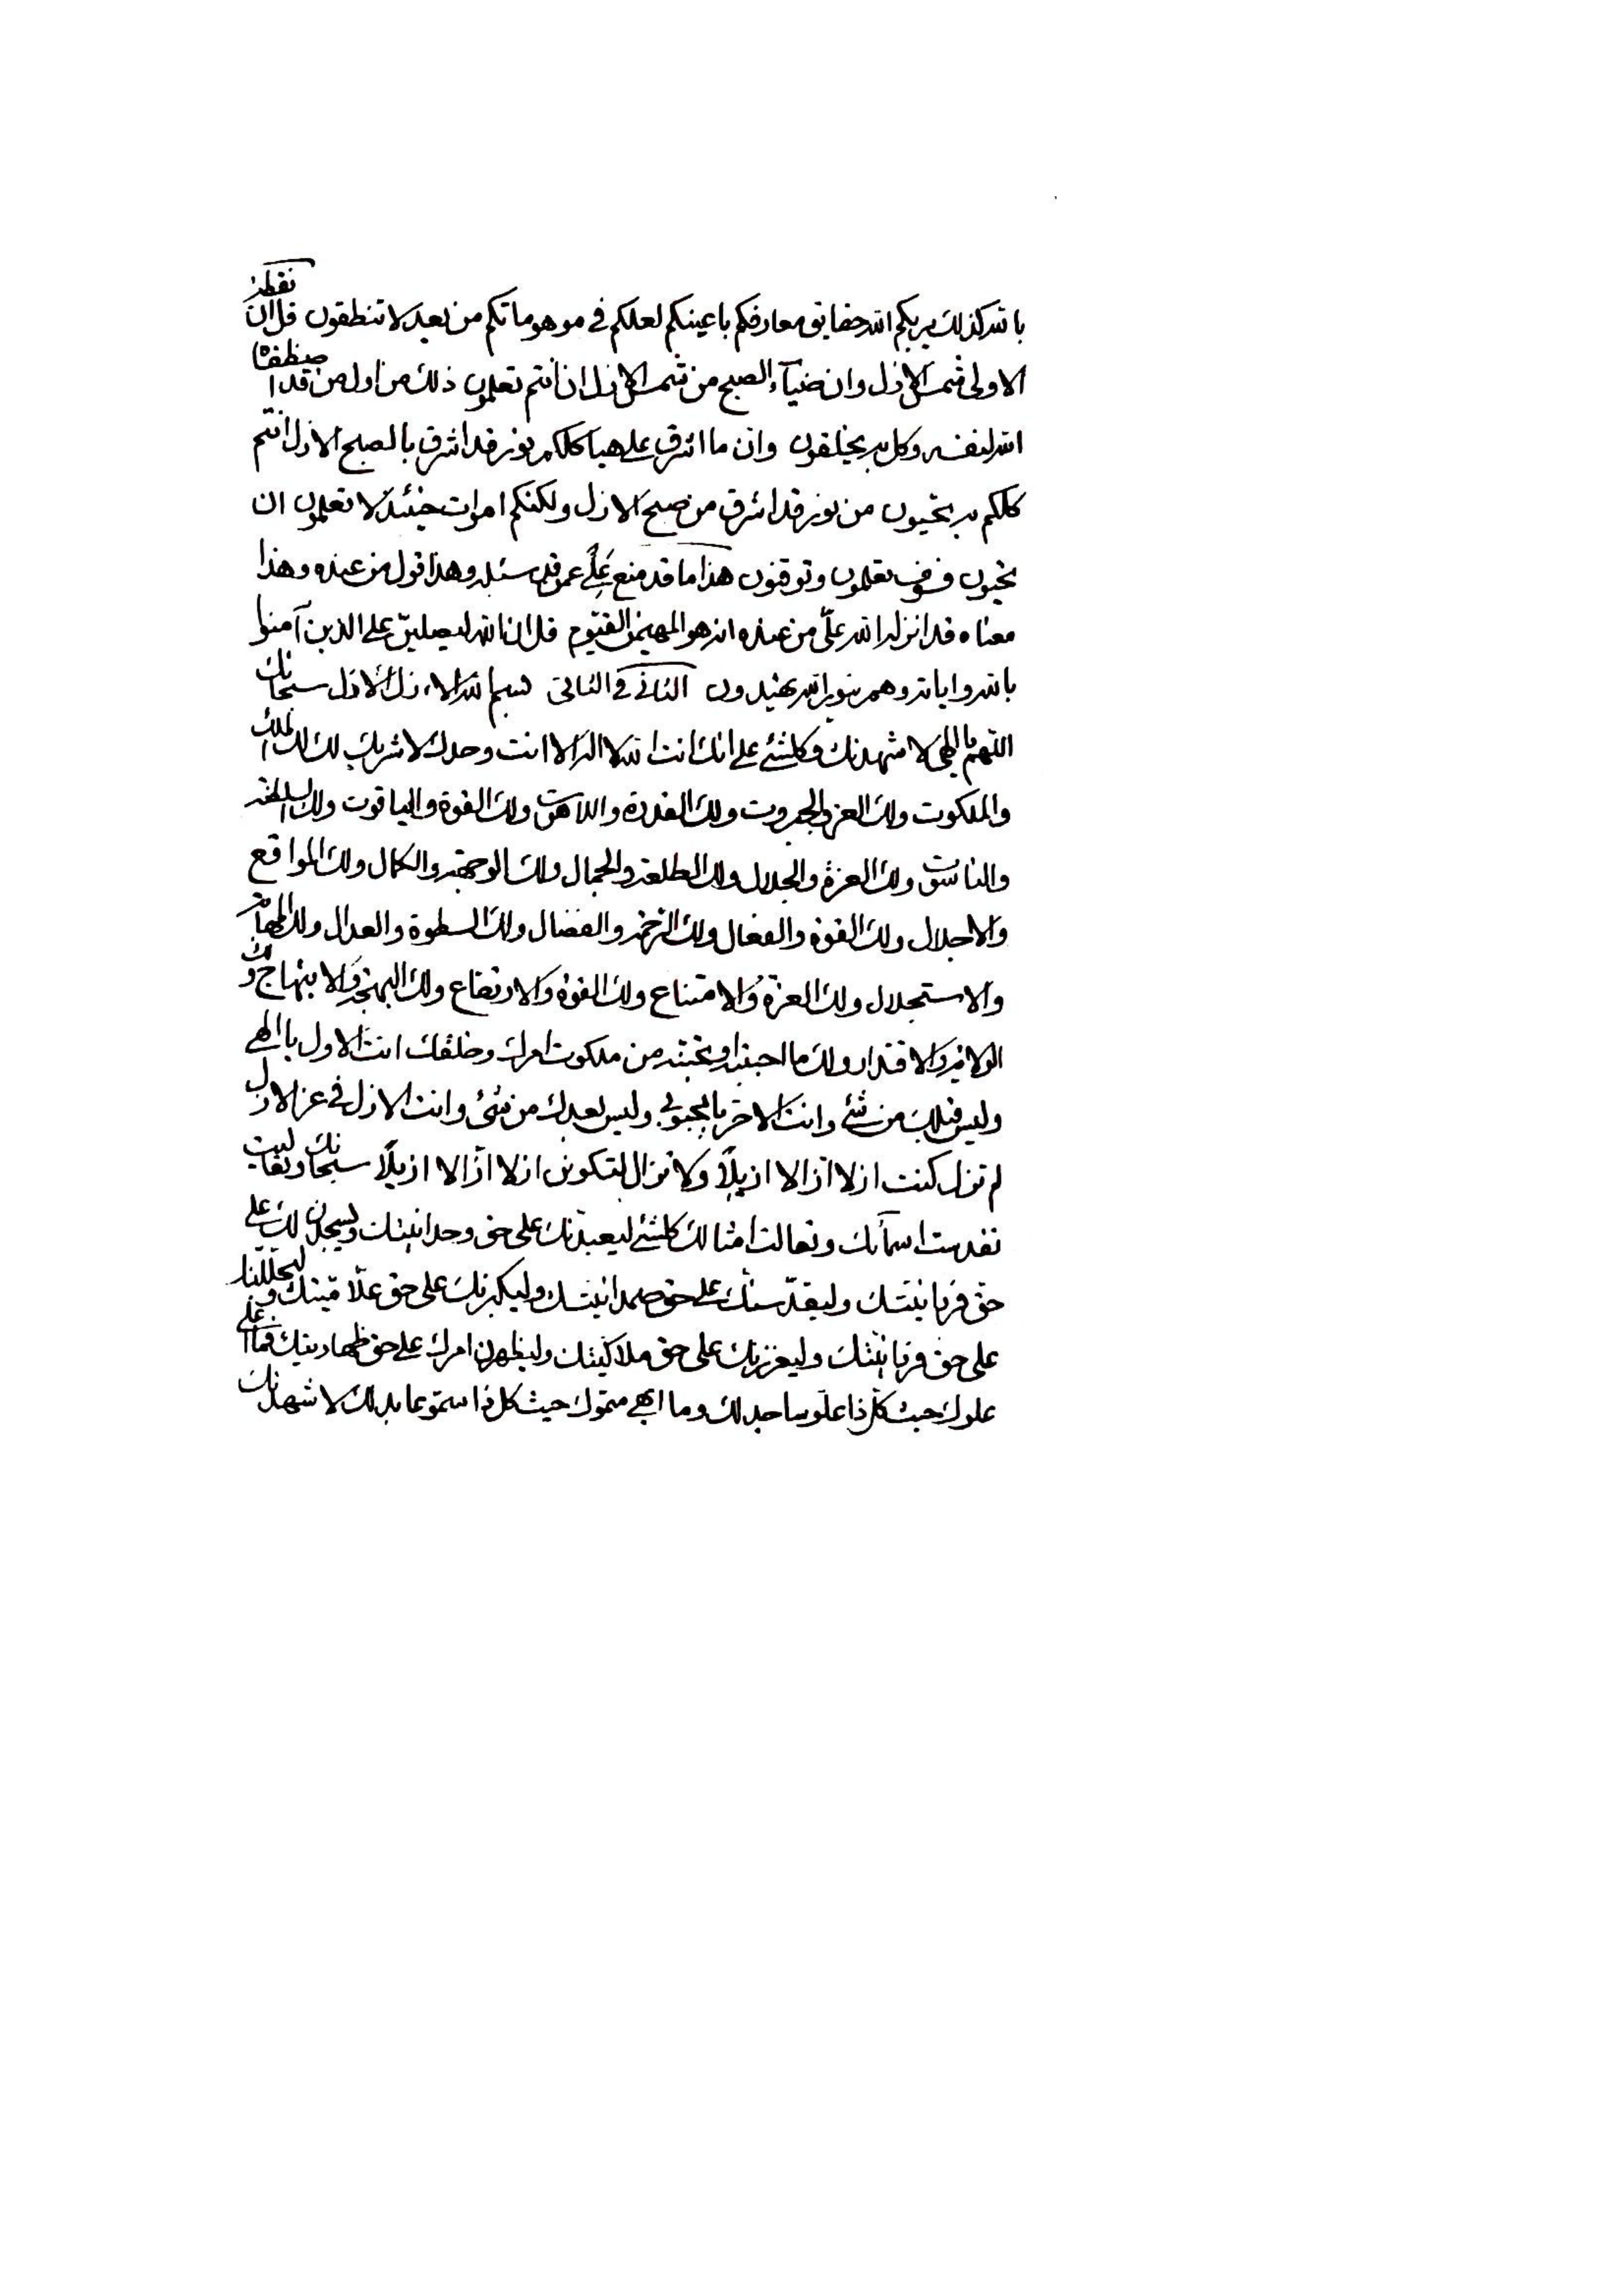 بالله كذلك يريكم الله حقايق معارفكم باعينكم لعلكم في موهوماتكم من بعد لا تنطقون قل ان نقطة
الاولى شمس الازل وان ضياء الصبح من شمس الازل ان انتم تعلمون ذلك من اول من قد اصطفاه
الله لنفسه وكل به يخلقون وان ما اشرق على هياكلكم نور قد اشرق بالصبح الازل انتم
كلكم به تحيون من نور قد اشرق من صبح الازل ولكنكم اموات حينئذ لا تعلمون ان
تحيون فسوف تعلمون وتوقنون هذا ما قد منع علي عمن قد سئله وهذا قول من عنده وهذا
معناه قد انزله الله علي من عنده انه هو المهيمن القيوم قل ان الله ليصلين على الذين آمنوا
بالله واياته وهم بنور الله يهتدون الثاني في الثاني بسم الله الازل الازل سبحانك
اللهم يا الهي لاشهدنك وكلشئ على انك انت الله لا اله الا انت وحدك لا شريك لك لك الملك
والملكوت ولك العز والجبروت ولك القدرة واللاهوت ولك القوة والياقوت ولك السلطنة
والناسوت ولك العزة والجلال ولك الطلعة والجمال ولك الوجهة والكمال ولك المواقع
والاجلال ولك القوة والفعال ولك الرحمة والفضال ولك السطوة والعدال ولك المهابة
والاستجلال ولك العزة والامتناع ولك القوة والارتفاع ولك البهجة والابتهاج ولك
الولاية والاقتدار ولك ما احببته او تحببنه من ملكوت امرك وخلقك انت الاول يا الهي
وليس قبلك من شئ وانت الاخر يا محبوبي وليس بعدك من شئ وانت الازل في عز الازل
لم تزل كنت ازلا ازالا ازيلاً ولا تزال لتكونن ازلا ازالا ازيلاً سبحانك وتعاليت
تقدست اسمائك وتعالت امثالك كلشئ ليعبدنك على حق وحدانيتك وليسجدن لك على
حق فردانيتك وليقدسنك على حق صمدانيتك وليكبرنك على حق علاميتك وليجللنك
على حق فردانيتك وليعززنك على حق ملاكيتك وليظهرن امرك على حق ظهاريتك فما اعلى
علوك حيث كل ذا علو ساجد لك وما ابهى سموك حيث كل ذا سمو عابد لك لاشهدنك